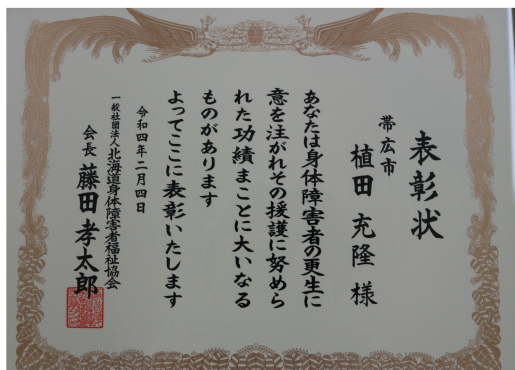 表彰状
帯広市
植田充隆様
あなたは身体障害者の更生に
意を注がれその援護に努めら
れた功績まことに大いなる
ものがあります
よってここに表彰いたします
令和四年二月四日
一般社団法人北海道身体障害者福祉協会
会長 藤田孝太郎